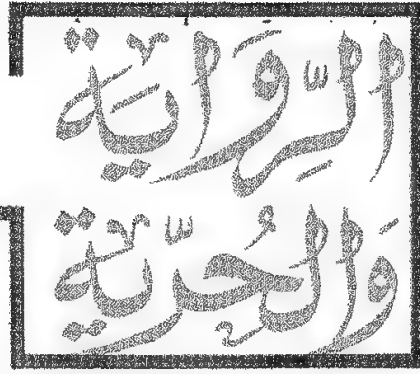 الرِّوَايَة
وَالحُرّية